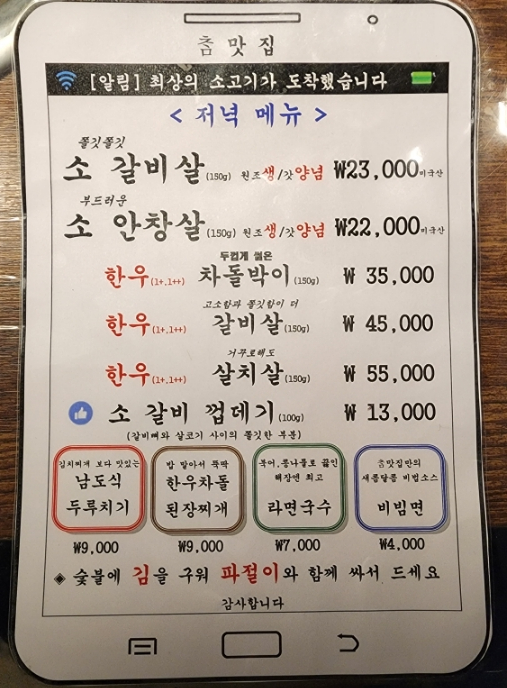 참맛집
[알림] 최상의 소고기가 도착했습니다
< 저녁 메뉴 >
쫄깃쫄깃
소 갈비살(150g) 원조생/갓양념 ₩23,000미국산
부드러운
소 안창살(150g) 원조생/갓양념 ₩22,000미국산
두껍게 썰은
한우(1+,1++) 차돌박이(150g) ₩ 35,000
고소함과 쫄깃함이 더
한우(1+,1++) 갈비살(150g) ₩ 45,000
거꾸로해도
한우(1+,1++) 살치살(150g) ₩ 55,000
소 갈비 껍데기(100g) ₩ 13,000
(갈비뼈와 살코기 사이의 쫄깃한 부분)
김치찌개 보다 맛있는
남도식
두루치기
₩9,000
밥 말아서 뚝딱
한우차돌
된장찌개
₩9,000
북어,콩나물로 끓인
해장엔 최고
라면국수
₩7,000
참맛집만의
새콤달콤 비법소스
비빔면
₩4,000
◈ 숯불에 김을 구워 파절이와 함께 싸서 드세요
감사합니다